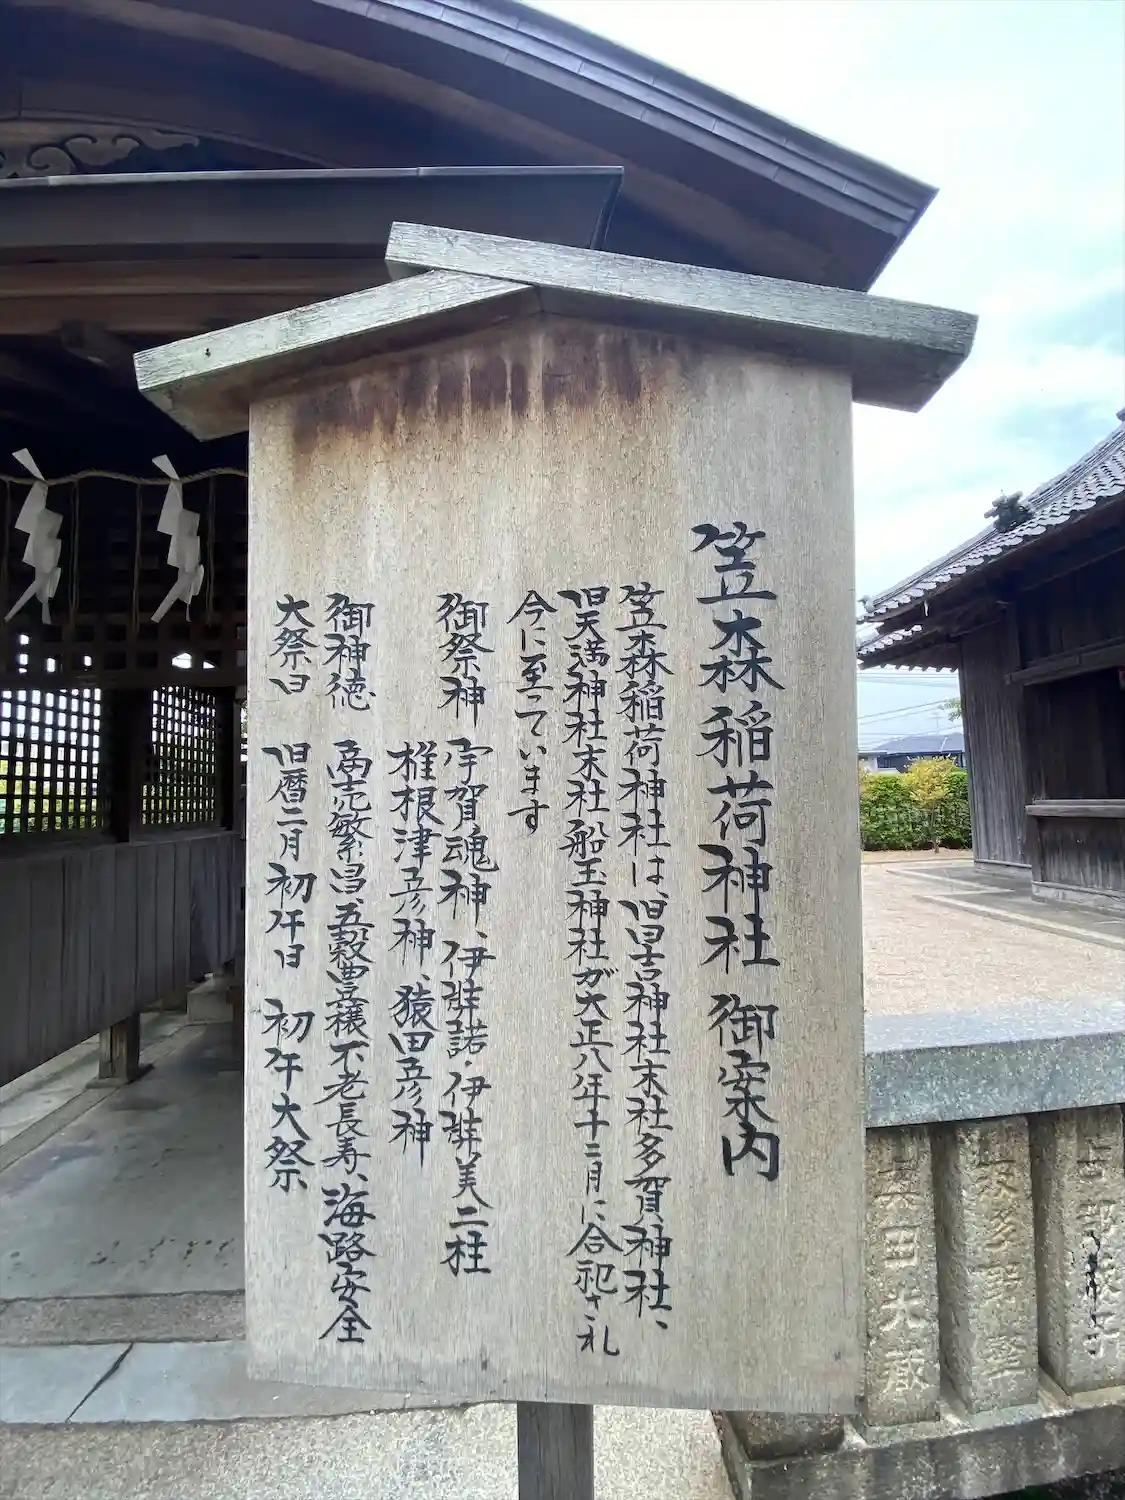 笠森稲荷神社 御案内
笠森稲荷神社は、旧日吉神社末社多賀神社、
旧天満神社末社船玉神社が大正八年十二月に合祀され
今に至っています
御祭神 宇賀魂神、伊弉諾・伊弉美二柱
椎根津彦神、猿田彦神
御神徳 商売繁昌、五穀豊穣、不老長寿、海路安全
大祭日 旧暦二月 初午日 初午大祭